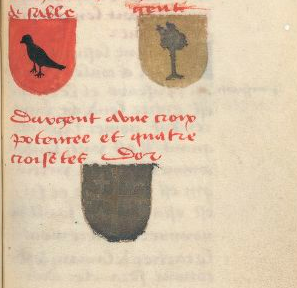 de sable
gent
Dargent a vne croix
potencee et quatre
croisetes Dor